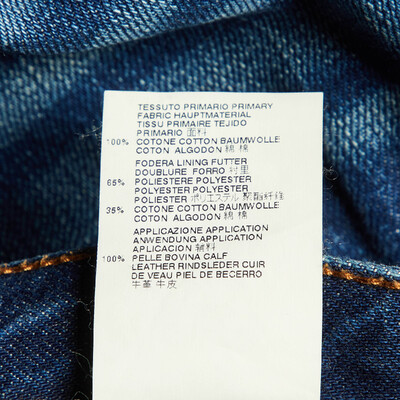 TESSUTO PRIMARIO PRIMARY
FABRIC HAUPTMATERIAL
TISSU PRIMAIRE TEJIDO
PRIMARIO 面料
100% COTONE COTTON BAUMWOLLE
COTON ALGODON 綿 棉
FODERA LINING FUTTER
DOUBLURE FORRO 衬里
65% POLIESTERE POLYESTER
POLYESTER POLYESTER
POLIESTER ポリエステル 聚酯纤维
35% COTONE COTTON BAUMWOLLE
COTON ALGODON 綿 棉
APPLICAZIONE APPLICATION
ANWENDUNG APPLICATION
APLICACION 辅料
100% PELLE BOVINA CALF
LEATHER RINDSLEDER CUIR
DE VEAU PIEL DE BECERRO
牛革 牛皮